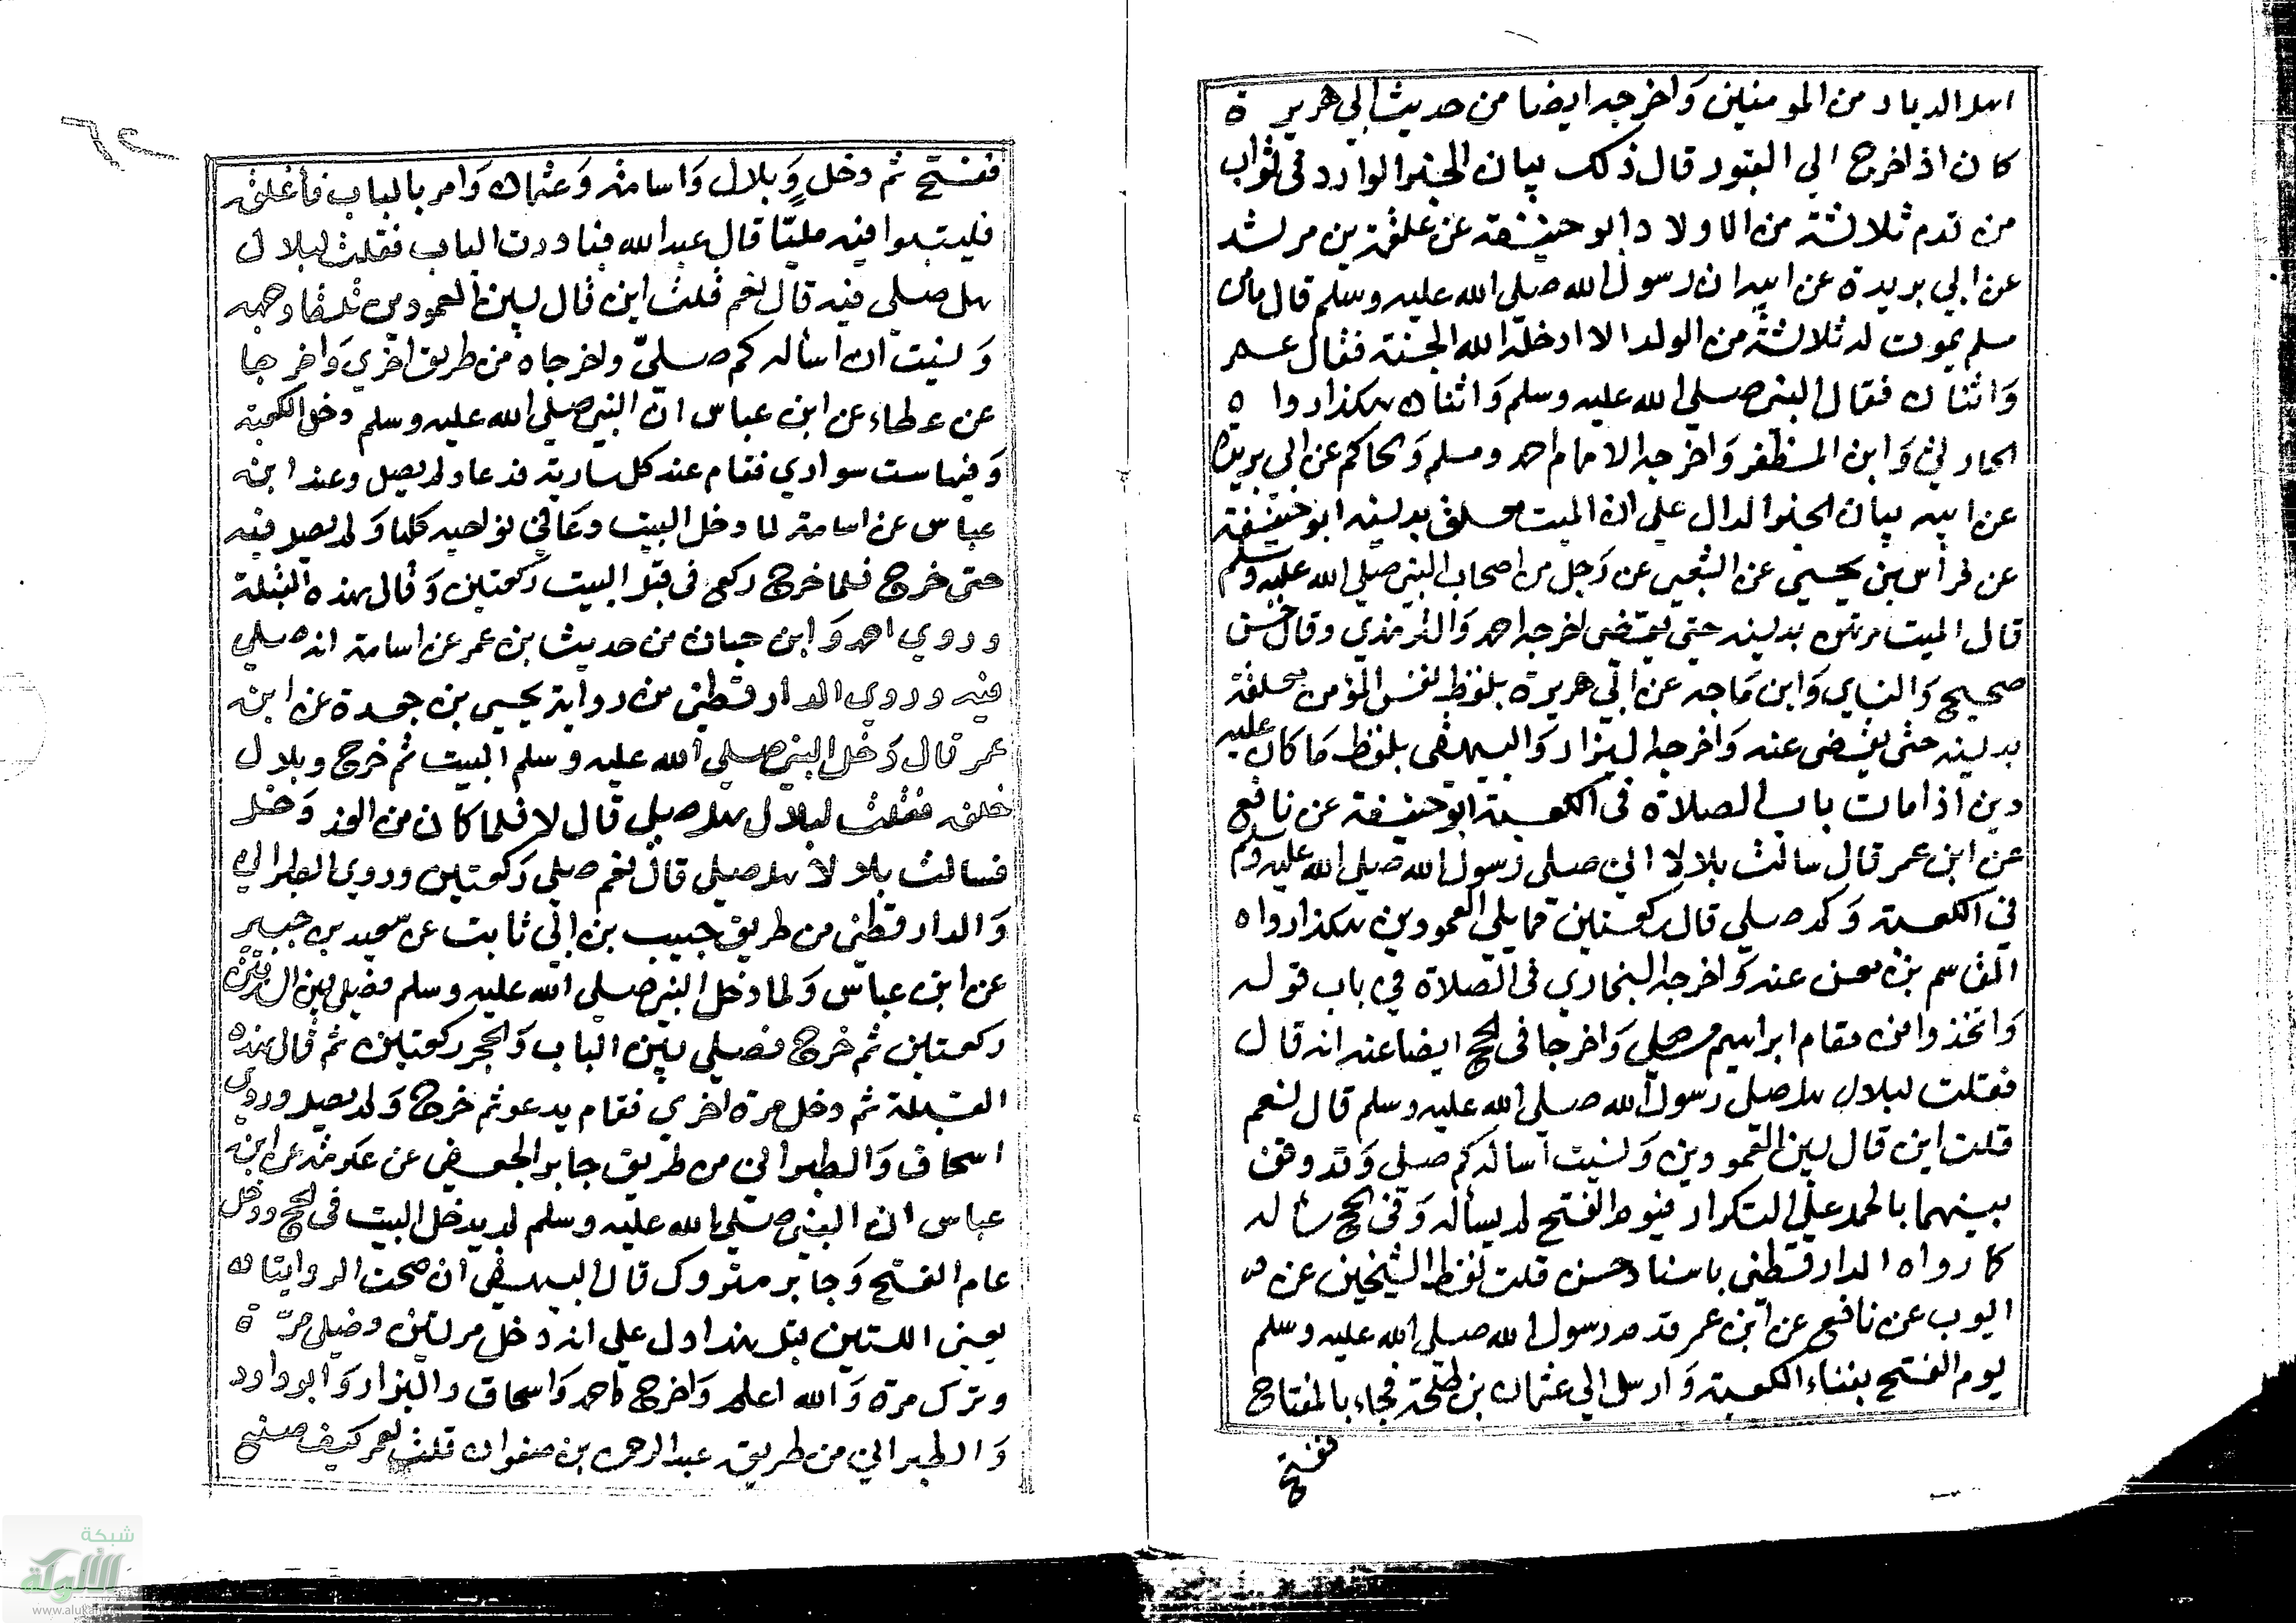 اهل الديار من المومنين وَاخرجه ايضا من حديث ابي هريرة
كان اذ اخرج الي القبور قال ذلك بيان الخبر الوارد في ثواب
من قدم ثلاثة من الاولاد ابو حنيفة عن علقمة بن مرثد
عن ابي بريدة عن ابيه ان رسول الله صلي الله عليه وسلم قال ما من
مسلم يموت له ثلاثة من الولد الا ادخله الله الجنة فقال عمر
وَاثنان فقال النبي صلي الله عليه وسلم وَاثنان هكذا رووا ه
الحارثي وَابن المظفر وَاخرجه الامام احمد ومسلم وَالحاكم عن ابي بريدة
عن ابيه بيان الخبر الدال علي ان الميت معلق بدينه ابو حنيفة
عن فراس بن يحيي عن الشعبي عن رَجل من اصحاب النبي صلي الله عليه وسلم
قال الميت مرتهن بدينه حتي يقتضي اخرجه احمد وَالترمذي وقال حسن
صحيح وَالنساي وَابن مَاجه عن ابي هريرة بلفظ نفس المؤمن معلقة
بدينه حتي يقضي عنه وَاخرجه البزار وَالبيهقي بلفظ مَا كان عليه
دين اذا مات باب الصلاة في الكعبة ابو حنيفة عن نافع
عن ابن عمر قال سالت بلالا اين صلي رَسول الله صلي الله عليه وسلم
في الكعبة وَكم صلي قال ركعتين مما يلي العمودين هكذا رواه
القاسم بن معن عنه وَاخرجه البخاري في الصلاة في باب قوله
وَاتخذوا من مقام ابراهيم مصلي وَاخرجا في الحج ايضا عنه انه قال
فقلت لبلال هل صلي رسول الله صلي الله عليه وسلم قال نعم
قلت اين قال بين العمودين وَنسيت اسأله كم صلي وَقد وفق
بينهما بالحمد علي التكرار فيوم الفتح لم يسأله وَفي الحج سأله
كما رواه الدارقطني باسناد حسن قلت لفظ الشيخين عن
ايوب عن نافع عن ابن عمر قدم رسول الله صلي الله عليه وسلم
يوم الفتح بفناء الكعبة وَارسل الي عثمان بن طلحة فجاء بالمفتاح
ففتح
ففتح ثم دخل وَبلال وَاسامة وَعثمان وَامر بالباب فأغلق
فلبثوا فيه مليّا قال عبد الله فبادرت الباب فقلت لبلال
هل صلي فيه قال نعم قلت اين قال بين العمودين تلقا وجهه
وَنسيت ان أسأله كم صلي واخرجاه من طريق اخري وَاخرجا
عن عطاء عن ابن عباس ان النبي صلي الله عليه وسلم دخل الكعبة
وَفيها ست سواري فقام عند كل سارية فدعا ولم يصل وعند ابن
عباس عن اسامة لما دخل البيت دعَا في نواحيه كلها وَلم يصل فيه
حتي خرج فلما خرج ركع في قبل البيت ركعتين وَقال هذه القبلة
وروي احمد وَابن حبان من حديث بن عمر عن اسامة انه صلي
فيه وروي الدارقطني من رواية يحيي بن جعدة عن ابن
عمر قال دَخل النبي صلي الله عليه وسلم البيت ثم خرج وبلال
خلفه فقلت لبلال هل صلي قال لا فلما كان من الغد وَخل
فسالت بلالاً هل صلي قال نعم صلي رَكعتين وروي الطبراني
وَالدارقطني من طريق حبيب بن ابي ثابت عن سعيد بن جبير
عن ابن عباس وَلما دخل النبي صلي الله عليه وسلم فصلي بين الساريتين
ركعتين ثم خرج فصلي بين الباب وَالحجر ركعتين ثم قال هذه
القبلة ثم دخل مرة اخري فقام يدعو ثم خرج وَلم يصل وروي
اسحاق وَالطبراني من طريق جابر الجعفي عن عكرمة عن ابن
عباس ان النبي صلي الله عليه وسلم لم يدخل البيت في الحج ودخل
عام الفتح وَجابر متروك قال البيهقي ان صحت الروايتان
يعني اللتين قبل هذا دل علي انه دخل مرتين وصلي مرّة
وترك مرة وَالله اعلم وَاخرج احمد وَاسحاق والبزار وَابو داود
وَالطبراني من طريق عبد الرحمن بن صفوان قلت لعمر كيف صنع
شبكة
الألوكة
www.alukah.net